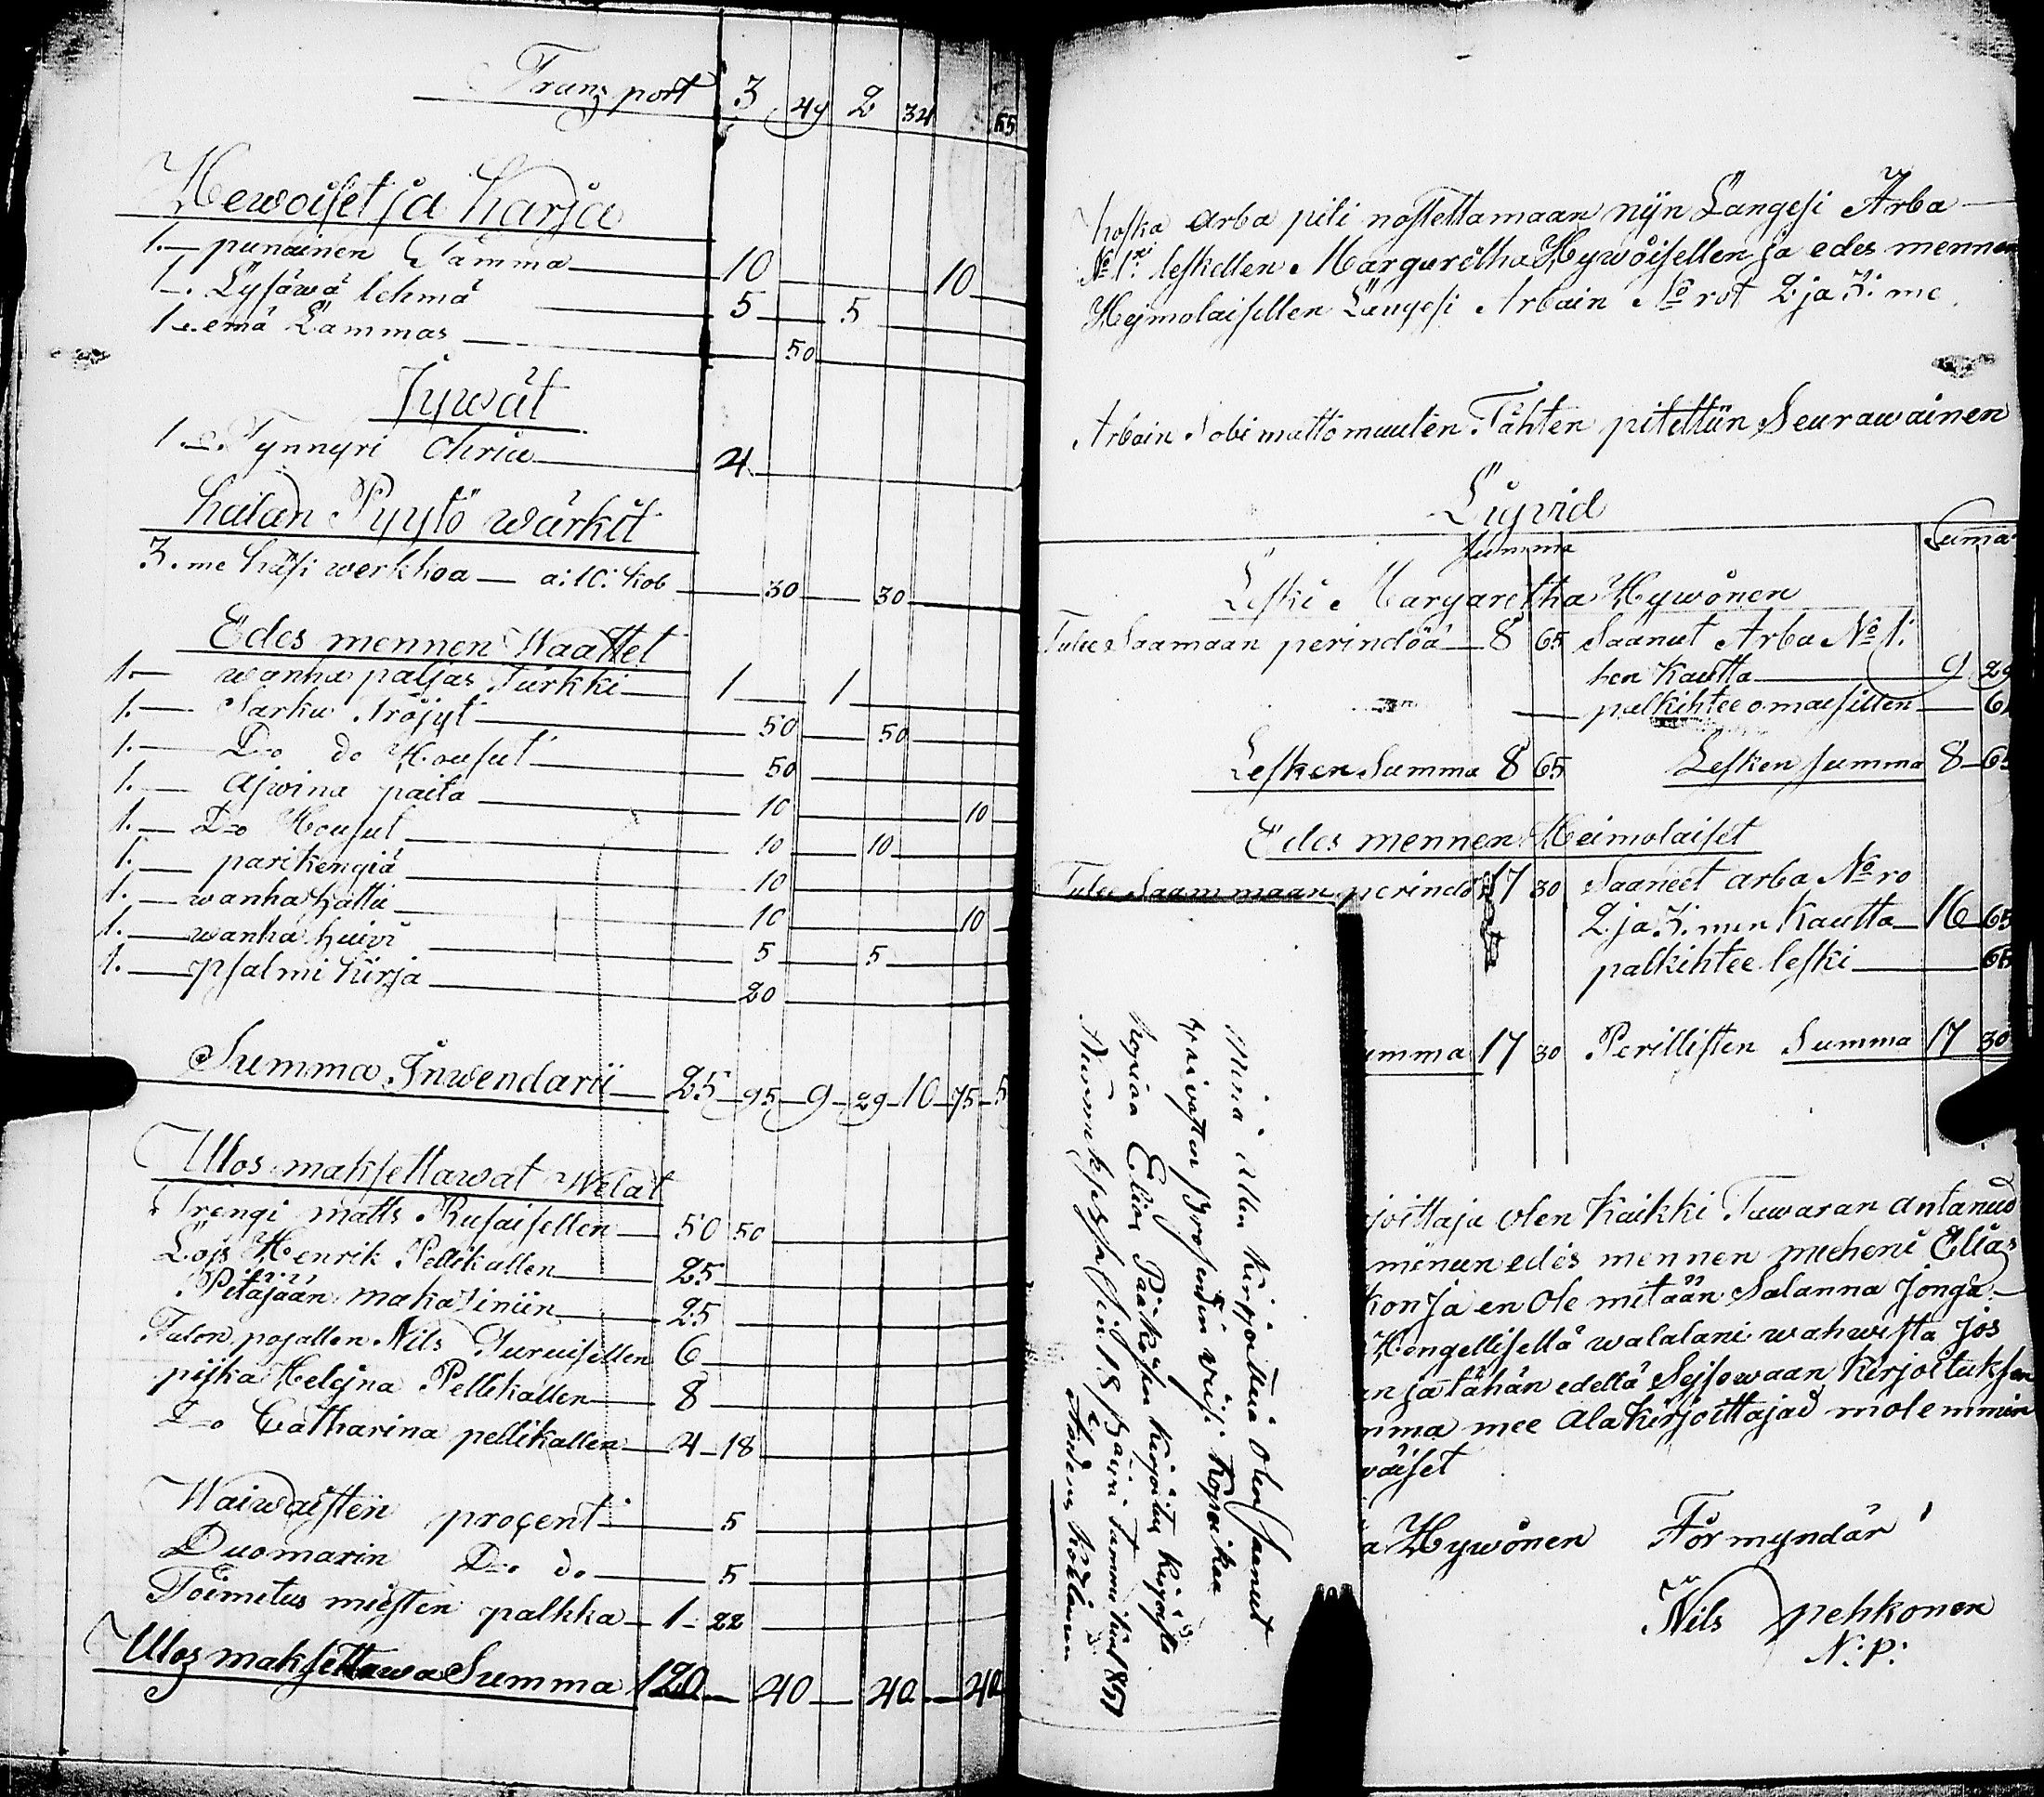 Transport 3 49 2 34 65
Hewoiset ja Karja
1.— punainen Tamma 10 10
1.— Lysäwä lehmä 5 5
1.— emä Lammas 50
Jywät
1.— Tynnyri Ohria 4
Kalan Pyytö wärkit
3.me käsi werkkoa — a: 10: kob 30 30
Edes mennen Waattet
1.— wanha paljas Turkki 1 1
1.— Sarka Tröjyt 50 50
1.— Do do Housut 50
1.— Ajwina paita 10 10
1.— Do Housut 10 10
1.— parikengiä 10
1.— wanha hattu 10 10
1.— wanha huivi 5 5
1.— psalmi kirja 20
Summa Inwendarii 25 95 9 29 10 75 5
Ulos maksettawat Welat
Trengi matts Rusaisellen 50 50
Lojs Henrik Pellikallen 25
Pitäjään makasiniin 25
Talon pojallen Nils Turuisellen 6
pijka Helejna Pellikallen 8
Do Catharina pellikallen 4 18
Waiwaisten procent 5
Duomarin Do do 5
Toimitus miesten palkka 1 22
Ulos maksettawa Summa 120 40 40 40
Koska arba piti nostettamaan nijn Langesi Arba
No 1 leskellen Margaretha Hywöisellen ja edes mennen
Hejmolaisellen Langesi Arbain No rot 2 ja 3: me.
Arbain Sobimattomuuten Tähten pitettiin Seurawainen
Liqvid
Summa Suma
Leski Margaretha Hywönen
Tulee Saamaan perindöä 8 65 Saanut Arba No 1:
hen Kautta 9 29
palkihtee omaisillen 6
Lesken Summa 8 65 Lesken summa 8 65
Edes mennen Heimolaiset
Tulee Saammaan perindö 17 30 Saaneet arba No ro
2 ja 3: men Kautta 16 65
palkihtee leski 65
umma 17 30 Perillisten Summa 17 30
Minä Allen kirjoittana olen saanut
waivasten prosendin viisi kopeikaa
kopiaa Elias Pääkösen
Nurmeksessa sin 18 päiwä Tammikuu
rjoittaja olen Kaikki Tawaran antanud
minun edes mennen mieheni Elias
kon Ja en Ole mitään Salanna Jonga
Hengellisellä walalani wahwista Jos
n ja tähän edellä Sejsowaan Kerjoituksen
mma mee Ala Kirjoittajad molemmin
wäiset
a Hywönen Förmyndär
Nils pehkonen
N: P: